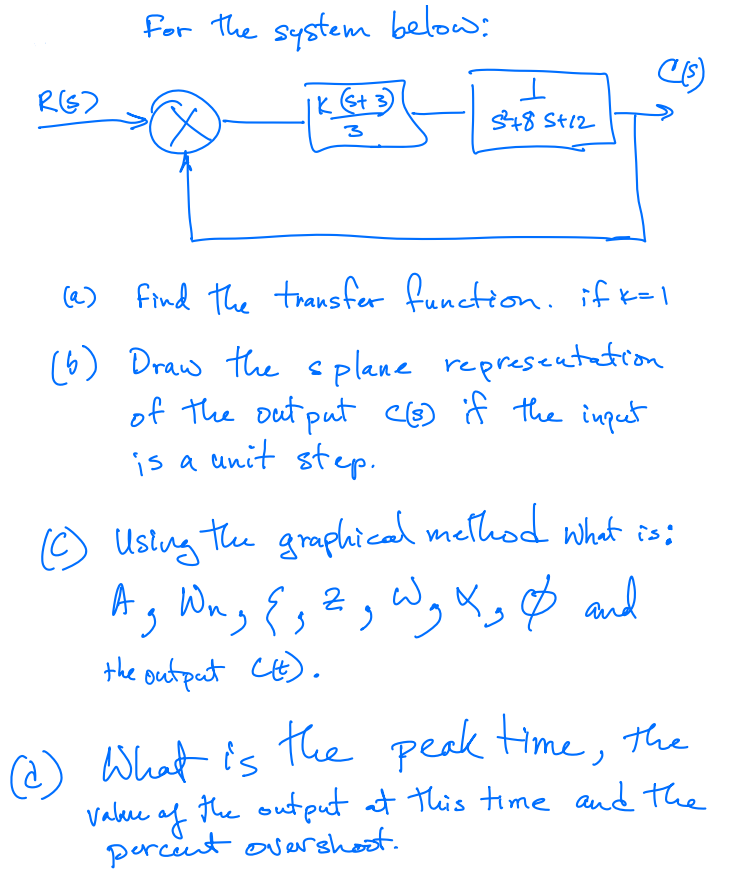 For the system below:
R(s)
K (s+3)
3
1
s²+8 s+12
C(s)
(a) Find the transfer function. if k=1
(b) Draw the s plane representation
of the output C(s) if the input
is a unit step.
(C) Using the graphical method what is:
A, Wn, ξ, z, W, α, Ø and
the output C(t).
(d) What is the peak time, the
value of the output at this time and the
percent overshoot.